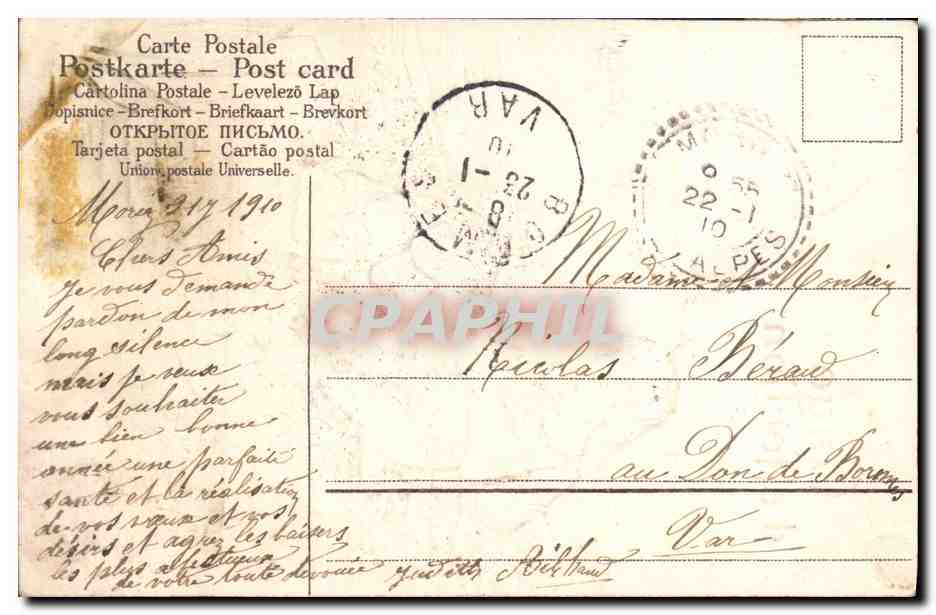 Carte Postale
Postkarte – Post card
Cartolina Postale – Levelezõ Lap
Dopisnice – Brefkort – Briefkaart – Brevkort
ОТКРЫТОЕ ПИСЬМО.
Tarjeta postal — Cartão postal
Union postale Universelle.
1910
Chers Amis
Je vous demande
pardon de mon
long silence
mais je veux
vous souhaiter
une bien bonne
année une parfaite
santé et la réalisation
de vos vœux et vos
désirs et agréez les baisers
les plus affectueux
de votre toute dévouée
Judith
BORMES
8
23 - 1
10
VAR
22 - 1
10
ALPES
Madame et Monsieur
Nicolas Béraud
au Don de Bormes
Var
CPAPHIL